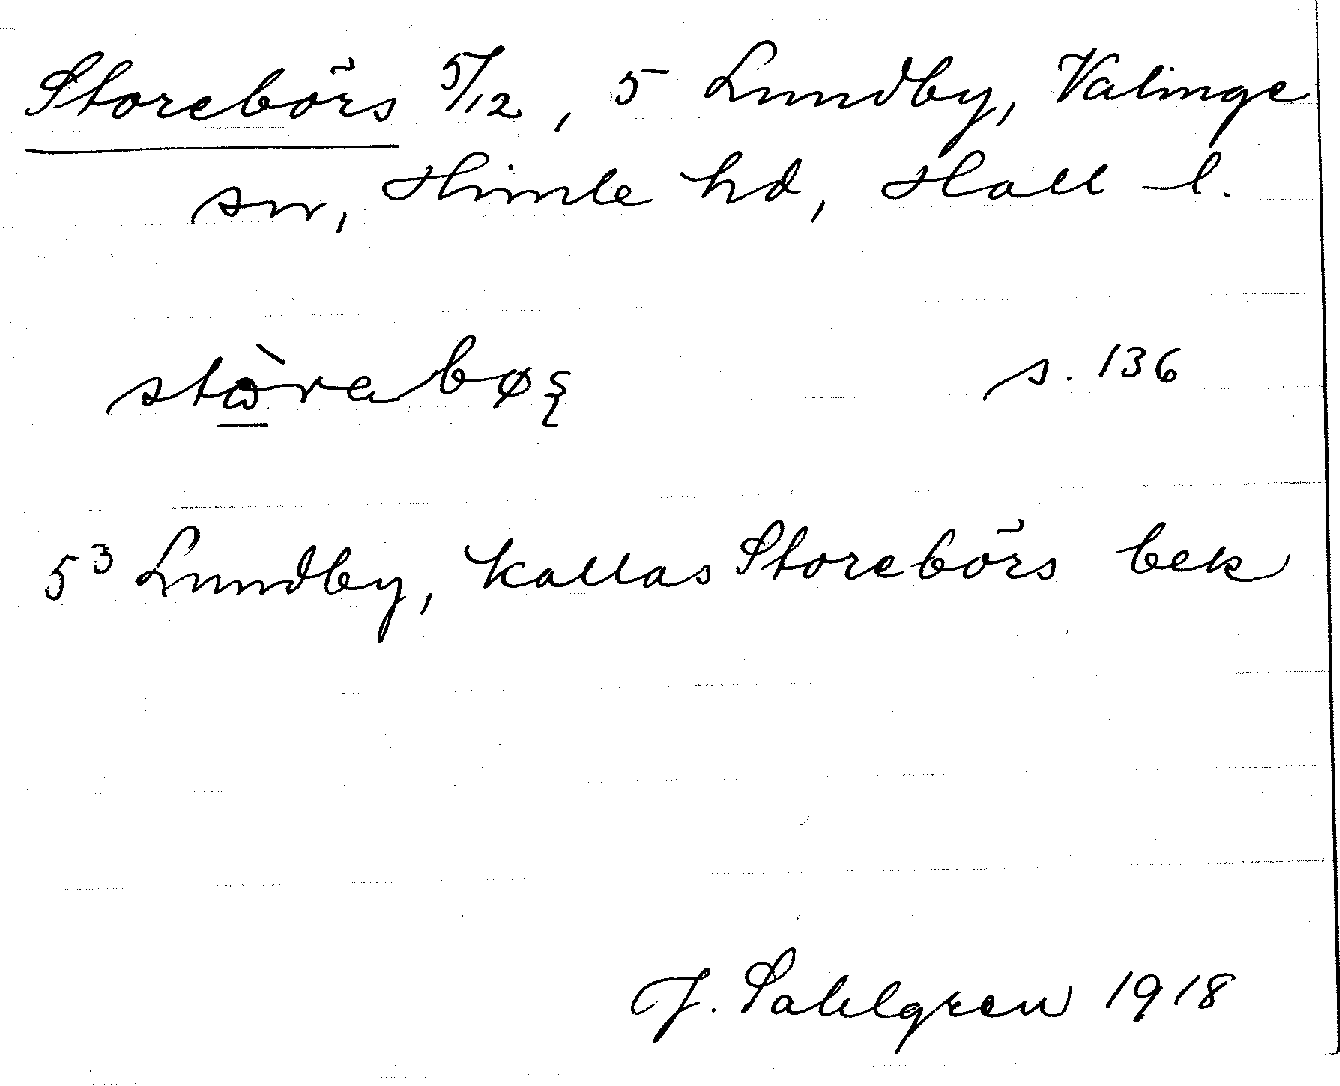 Storebörs 5/12, 5 Lundby, Valinge
sn, Himle hd, Hall l.
s. 136
5³ Lundby, kallas Storebörs bek
J. Sahlgren 1918